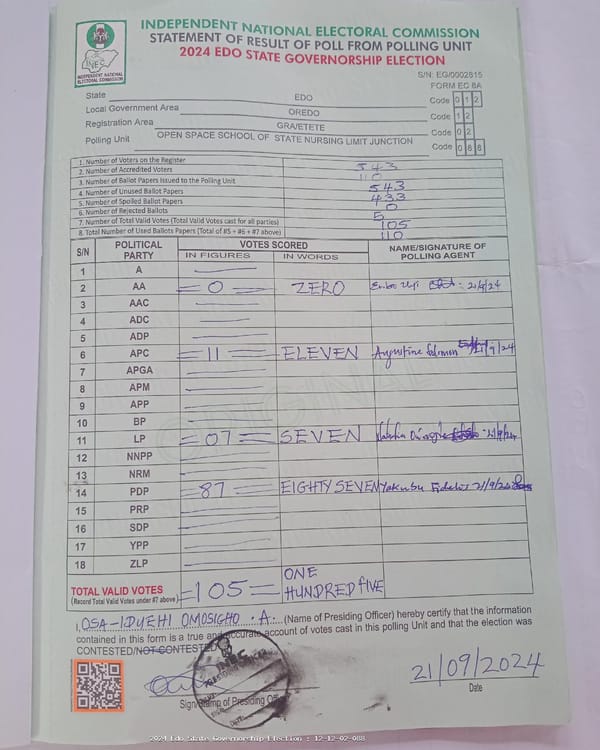 INDEPENDENT NATIONAL ELECTORAL COMMISSION
STATEMENT OF RESULT OF POLL FROM POLLING UNIT
2024 EDO STATE GOVERNORSHIP ELECTION
INEC
INDEPENDENT NATIONAL ELECTORAL COMMISSION
S/N: EG/0002815
FORM EC 8A
State EDO Code 0 1 2
Local Government Area OREDO Code 1 2
Registration Area GRA/ETETE Code 0 2
Polling Unit OPEN SPACE SCHOOL OF STATE NURSING LIMIT JUNCTION Code 0 8 8
1. Number of Voters on the Register 543
2. Number of Accredited Voters 110
3. Number of Ballot Papers Issued to the Polling Unit 543
4. Number of Unused Ballot Papers 433
5. Number of Spoiled Ballot Papers 0
6. Number of Rejected Ballots 5
7. Number of Total Valid Votes (Total Valid Votes cast for all parties) 105
8. Total Number of Used Ballots Papers (Total of #5 + #6 + #7 above) 110
S/N POLITICAL PARTY VOTES SCORED NAME/SIGNATURE OF POLLING AGENT
IN FIGURES IN WORDS
1 A
2 AA 0 ZERO 21/9/24
3 AAC
4 ADC
5 ADP
6 APC 11 ELEVEN Augustine Solomon 21/9/24
7 APGA
8 APM
9 APP
10 BP
11 LP 07 SEVEN 21/9/24
12 NNPP
13 NRM
14 PDP 87 EIGHTY SEVEN Yakubu 21/9/24
15 PRP
16 SDP
17 YPP
18 ZLP
TOTAL VALID VOTES (Record Total Valid Votes under #7 above) 105 ONE HUNDRED FIVE
I, OSA-IDUEHI OMOSIGHO .A. (Name of Presiding Officer) hereby certify that the information
contained in this form is a true and accurate account of votes cast in this polling Unit and that the election was
CONTESTED/NOT CONTESTED
INEC
21/09/2024
Sign/Stamp of Presiding Officer
Date
2024 Edo State Governorship Election : 12-12-02-088